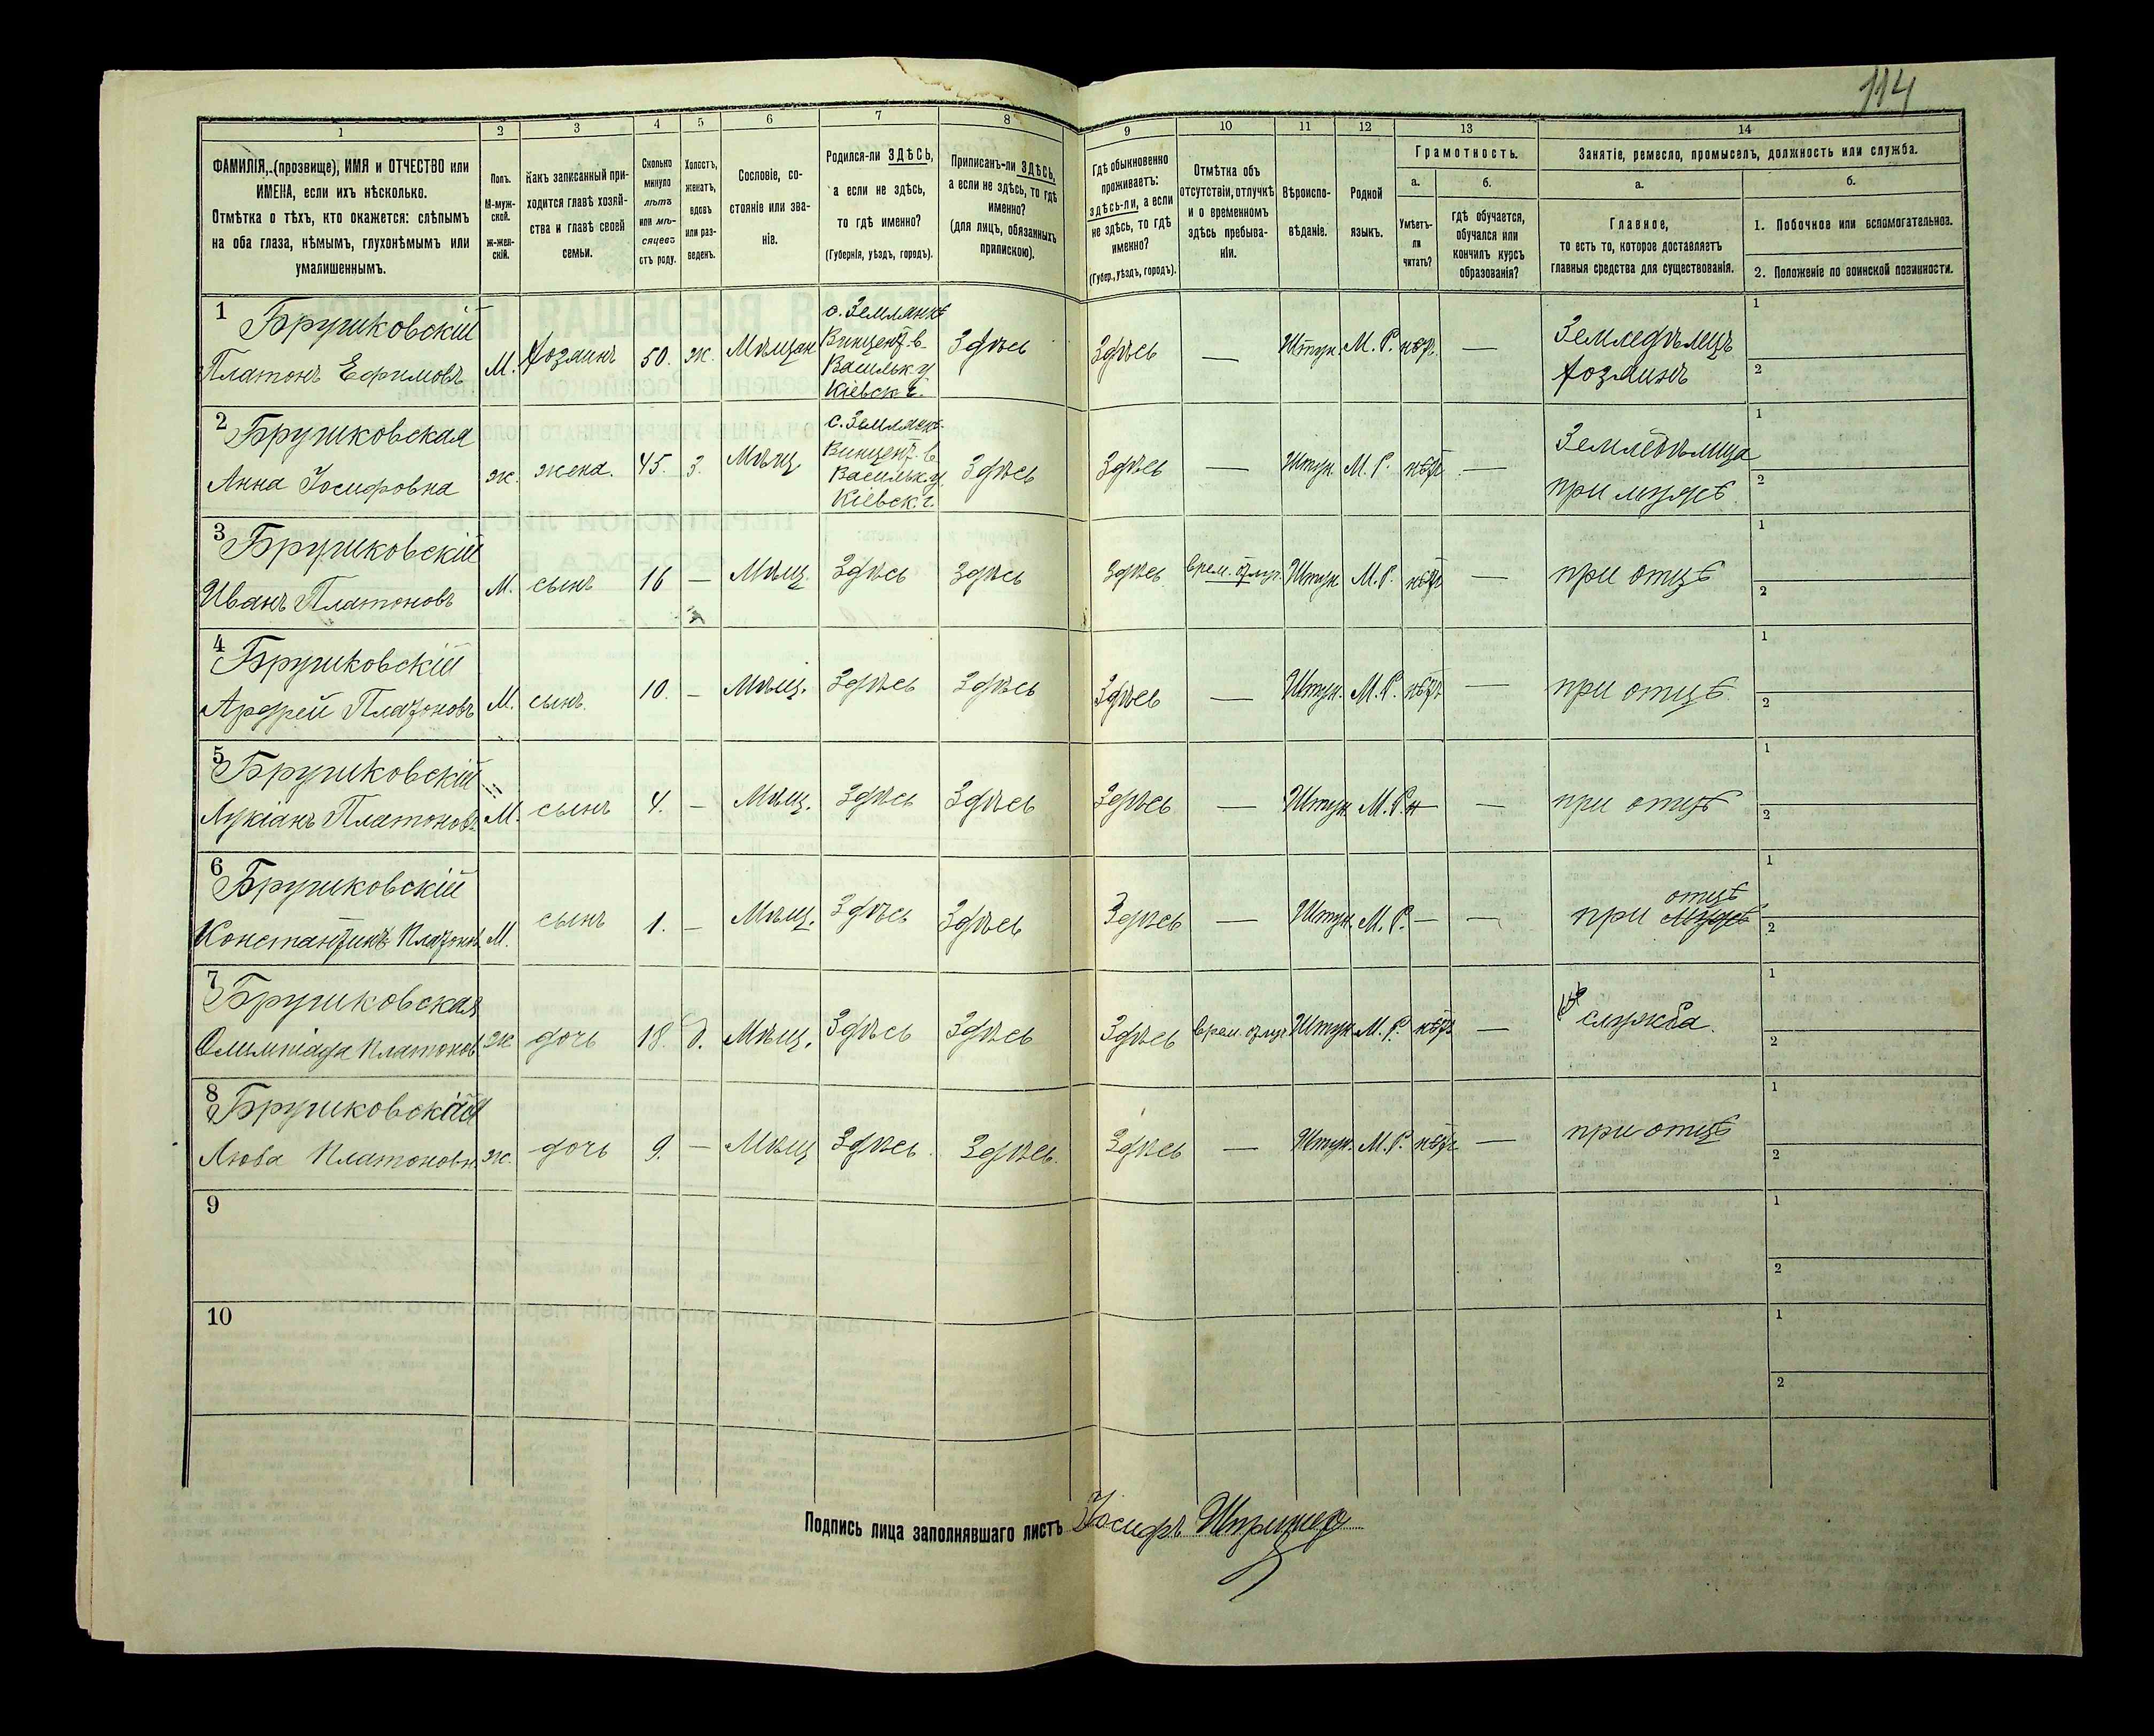 114
1 2 3 4 5 6 7 8 9 10 11 12 13 14
ФАМИЛІЯ, (прозвище), ИМЯ и ОТЧЕСТВО или
ИМЕНА, если ихъ нѣсколько.
Отмѣтка о тѣхъ, кто окажется: слѣпымъ
на оба глаза, нѣмымъ, глухонѣмымъ или
умалишеннымъ.
Полъ.
М-муж-
ской.
Ж-жен-
скій.
Какъ записанный при-
ходится главѣ хозяй-
ства и главѣ своей
семьи.
Сколько
минуло
лѣтъ
или мѣ-
сяцевъ
отъ роду.
Холостъ,
женатъ,
вдовъ
или раз-
веденъ.
Сословіе, со-
стояніе или зва-
ніе.
Родился-ли ЗДѢСЬ,
а если не здѣсь,
то гдѣ именно?
(Губернія, уѣздъ, городъ).
Приписанъ-ли ЗДѢСЬ,
а если не здѣсь, то гдѣ
именно?
(для лицъ, обязанныхъ
припискою).
Гдѣ обыкновенно
проживаетъ:
здѣсь-ли, а если
не здѣсь, то гдѣ
именно?
(Губер., уѣздъ, городъ).
Отмѣтка объ
отсутствіи, отлучкѣ
и о временномъ
здѣсь пребыва-
ніи.
Вѣроиспо-
вѣданіе.
Родной
языкъ.
Грамотность.
а.
Умѣетъ-
ли
читать?
б.
гдѣ обучается,
обучался или
кончилъ курсъ
образованія?
Занятіе, ремесло, промыселъ, должность или служба.
а.
Главное,
то есть то, которое доставляетъ
главныя средства для существованія.
б.
1. Побочное или вспомогательное.
2. Положеніе по воинской повинности.
1 Брушковскій
Платонъ Ефимовъ
М. Хозяинъ 50. ж. Мѣщан
с. Землянкѣ
Винцент. в.
Васильк. у
Кіевск. г.
Здѣсь Здѣсь — Штун. М. Р. нѣтъ —
Земледѣлецъ
Хозяинъ
1
2
2 Брушковская
Анна Іосифовна
ж. жена. 45. З. Мѣщ
с. Землянк.
Винцент. в
Васильк. у
Кіевск. г.
Здѣсь Здѣсь — Штун. М. Р. нѣтъ —
Земледѣлица
при мужѣ
1
2
3 Брушковскій
Иванъ Платоновъ
М. сынъ 16 — Мѣщ. Здѣсь Здѣсь Здѣсь врем. отлуч. Штун М. Р. нѣтъ — при отцѣ
1
2
4 Брушковскій
Андрей Платоновъ
М. сынъ. 10. — Мѣщ. Здѣсь Здѣсь Здѣсь — Штун. М. Р. нѣтъ — при отцѣ
1
2
5 Брушковскій
Лукіанъ Платоновъ
М. сынъ 4. — Мѣщ. Здѣсь Здѣсь Здѣсь — Штун. М. Р. — — при отцѣ
1
2
6 Брушковскій
Константинъ Платоно
М. сынъ 1. — Мѣщ. Здѣсь Здѣсь Здѣсь — Штун. М. Р. — —
отцѣ
при мужѣ
1
2
7 Брушковская
Олимпіада Платонов
ж дочь 18. д. Мѣщ. Здѣсь Здѣсь Здѣсь врем. отлуч. Штун М. Р. нѣтъ — служба.
1
2
8 Брушковская
Люба Платоновн.
ж. дочь 9. — Мѣщ Здѣсь Здѣсь. Здѣсь — Штун. М. Р. нѣтъ — при отцѣ
1
2
9
1
2
10
1
2
Подпись лица заполнявшаго листъ Іосифъ